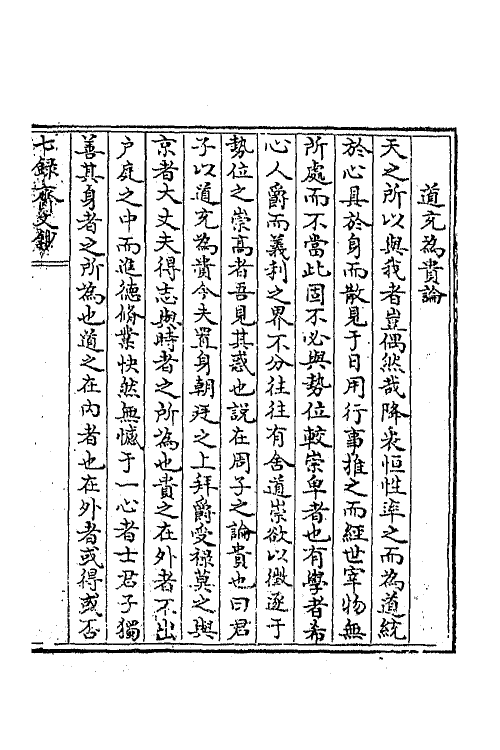 道充為貴論
天之所以與我者豈偶然哉降衷恒性率之而為道統
於心具於身而散見于日用行事推之而經世宰物無
所處而不當此固不必與勢位較崇卑者也有學者希
心人爵而義利之界不分往往有舍道崇欲以徵逐于
勢位之崇高者吾見其惑也說在周子之論貴也曰君
子以道充為貴今夫置身朝廷之上拜爵受祿莫之與
京者大丈夫得志與時者之所為也貴之在外者不出
戶庭之中而進德修業快然無憾于一心者士君子獨
善其身者之所為也道之在內者也在外者或得或否
七錄齋文鈔